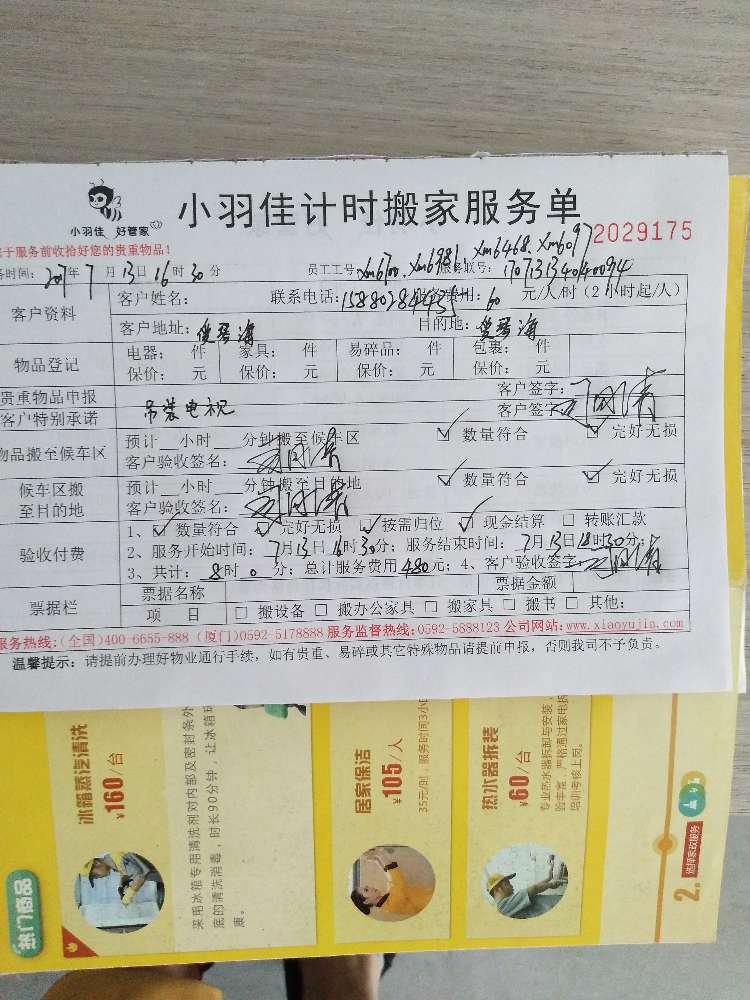 小羽佳 好管家
小羽佳计时搬家服务单
2029175
于服务前收拾好您的贵重物品!
务时间: 2017年 7月 13日 16时 30分 员工工号: xm6700、xm6981、xm6468、xm6097 服务联号:
客户资料
客户姓名: 联系电话: 服务费用: 60 元/人/时(2小时起/人)
客户地址: 目的地:
物品登记
电器: 件 家具: 件 易碎品: 件 包裹: 件
保价: 元 保价: 元 保价: 元 保价: 元
贵重物品申报 客户签字:
客户特别承诺 吊装电视 客户签字:
物品搬至候车区
预计__小时__分钟搬至候车区 ☑ 数量符合 ☑ 完好无损
客户验收签名:
候车区搬至目的地
预计__小时__分钟搬至目的地 ☑ 数量符合 ☑ 完好无损
客户验收签名:
验收付费
1、☑ 数量符合 ☑ 完好无损 ☑ 按需归位 ☑ 现金结算 □ 转账汇款
2、服务开始时间: 7月13日16时30分; 服务结束时间: 7月13日18时30分;
3、共计: 8时0分; 总计服务费用480元; 4、客户验收签字:
票据栏
票据名称 票据金额
项 目 □ 搬设备 □ 搬办公家具 □ 搬家具 □ 搬书 □ 其他:
服务热线:(全国)400-6655-888 (厦门)0592-5178888 服务监督热线:0592-5888123 公司网站:www.xiaoyujia.com
温馨提示: 请提前办理好物业通行手续, 如有贵重、易碎或其它特殊物品请提前申报, 否则我司不予负责。
热门商品
冰箱蒸汽清洗
¥160/台
采用冰箱专用清洗剂对内部及密封条
底的清洗消毒, 时长90分钟, 让冰箱
康。
居家保洁
¥105/人
35元/时, 服务时间3小
热水器拆装
¥60/台
专业热水器拆卸与安装,
验丰富, 严格通过家电拆
培训考核上岗。
2.
选择家政服务